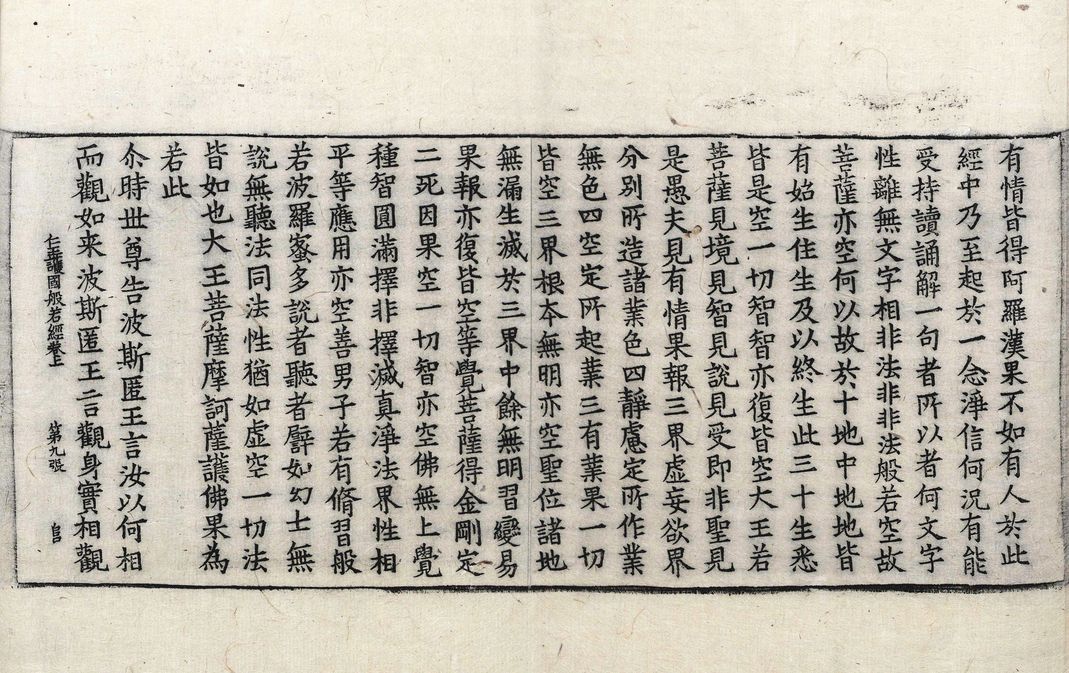 有情皆得阿羅漢果不如有人於此
經中乃至起於一念淨信何況有能
受持讀誦解一句者所以者何文字
性離無文字相非法非非法般若空故
菩薩亦空何以故於十地中地地皆
有始生住生及以終生此三十生悉
皆是空一切智智亦復皆空大王若
菩薩見境見智見說見受即非聖見
是愚夫見有情果報三界虛妄欲界
分別所造諸業色四靜慮定所作業
無色四空定所起業三有業果一切
皆空三界根本無明亦空聖位諸地
無漏生滅於三界中餘無明習變易
果報亦復皆空等覺菩薩得金剛定
二死因果空一切智亦空佛無上覺
種智圓滿擇非擇滅真淨法界性相
平等應用亦空善男子若有脩習般
若波羅蜜多說者聽者譬如幻士無
說無聽法同法性猶如虛空一切法
皆如也大王菩薩摩訶薩護佛果為
若此
尒時世尊告波斯匿王言汝以何相
而觀如來波斯匿王言觀身實相觀
仁王護國般若經卷上 第九張